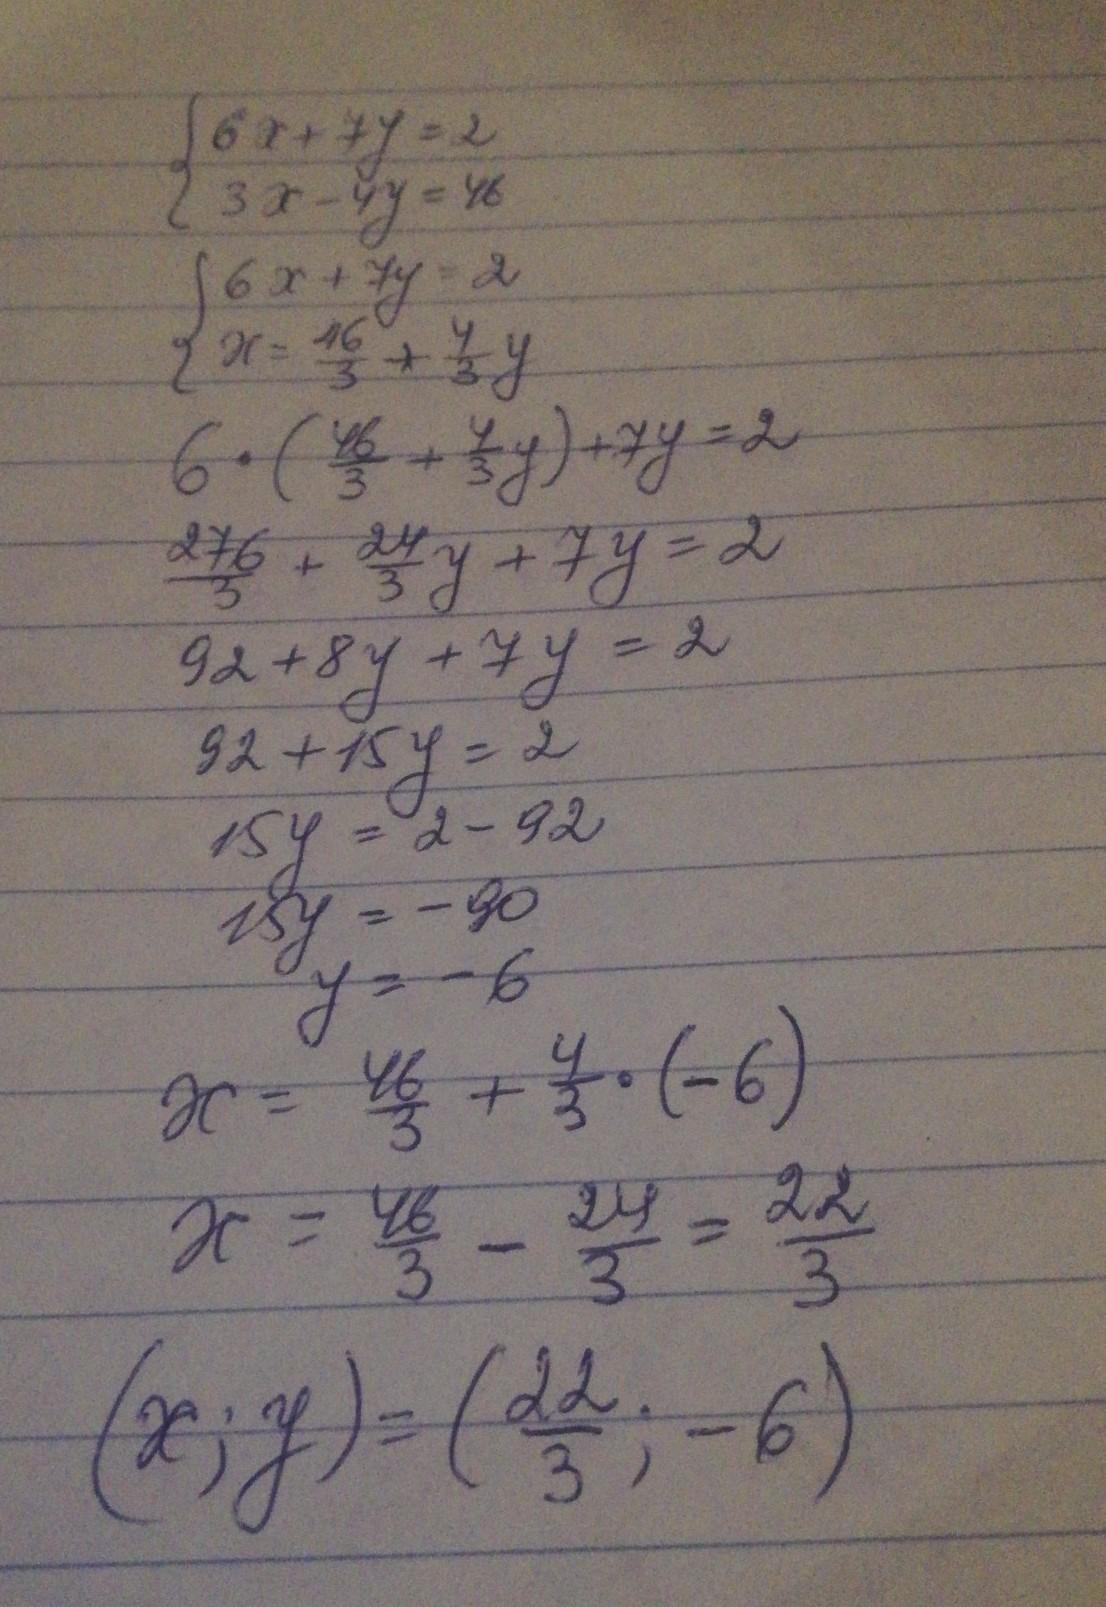 {6x+7y=2
3x-4y=46
{6x+7y=2
x=46/3+4/3y
6·(46/3+4/3y)+7y=2
276/3+24/3y+7y=2
92+8y+7y=2
92+15y=2
15y=2-92
15y=-90
y=-6
x=46/3+4/3·(-6)
x=46/3-24/3=22/3
(x;y)=(22/3;-6)